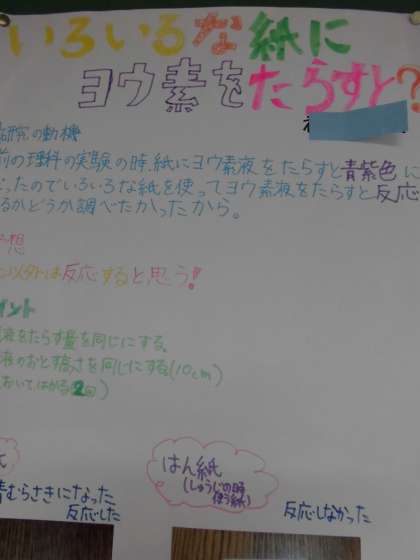 いろいろな紙に
ヨウ素をたらすと?
研究の動機
前の理科の実験の時、紙にヨウ素液をたらすと青紫色に
ったのでいろいろな紙を使ってヨウ素液をたらすと反応
るかどうか調べたかったから。
予想
以外は反応すると思う!
イント
液をたらす量を同じにする。
液のおとす高さを同じにする(10cm)
おいてはかる(2回)
紙
はん紙
(しゅうじの時
使う紙)
青むらさきになった
反応した
反応しなかった